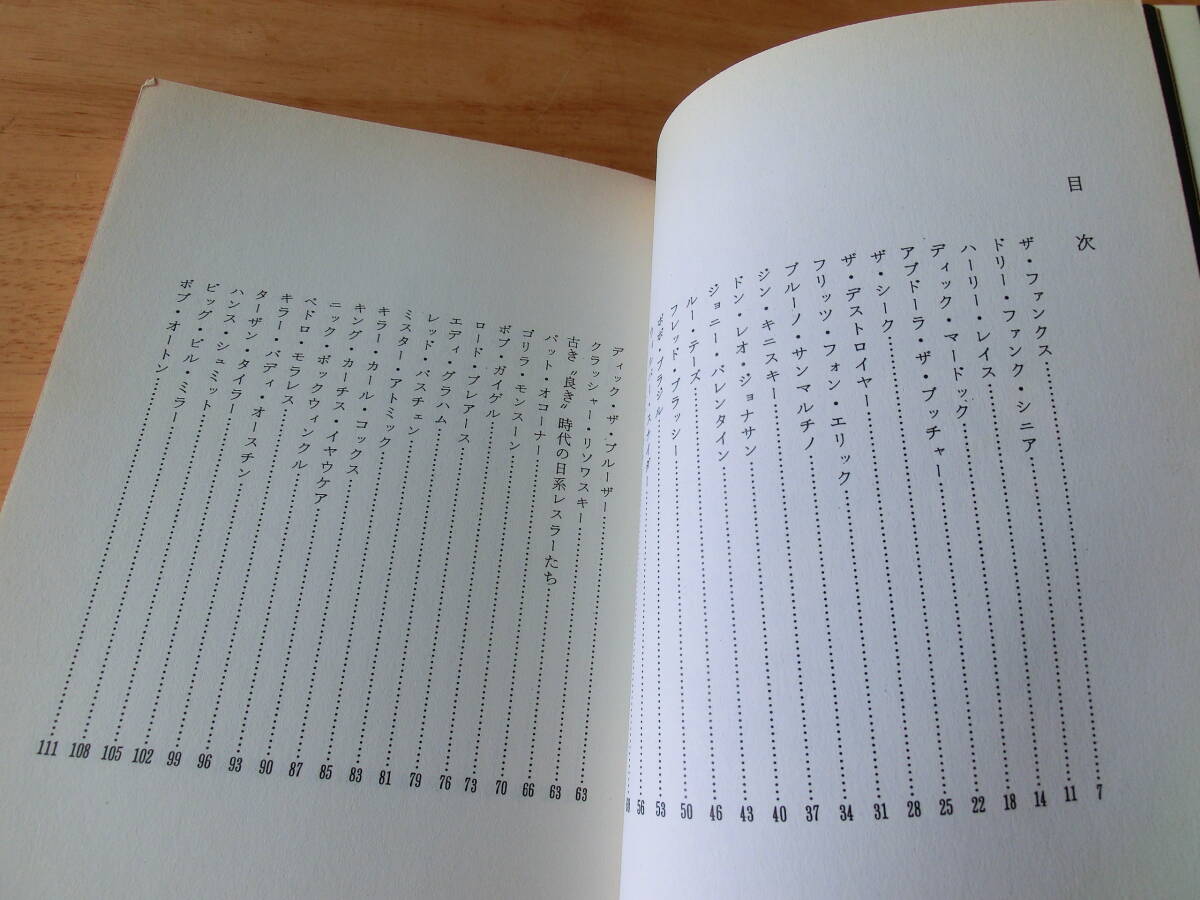 目次
ザ・ファンクス 7
ドリー・ファンク・シニア 11
ハーリー・レイス 14
ディック・マードック 18
アブドーラ・ザ・ブッチャー 22
ザ・シーク 25
ザ・デストロイヤー 28
フリッツ・フォン・エリック 31
ブルーノ・サンマルチノ 34
ジン・キニスキー 37
ドン・レオ・ジョナサン 40
ジョニー・バレンタイン 43
ルー・テーズ 46
フレッド・ブラッシー 50
ボボ・ブラジル 53
スナイダー 56
ディック・ザ・ブルーザー 63
クラッシャー・リソワスキー 63
古き〝良き〟時代の日系レスラーたち 66
パット・オコーナー 70
ゴリラ・モンスーン 73
ボブ・ガイゲル 76
ロード・ブレアース 79
エディ・グラハム 81
レッド・バスチェン 83
ミスター・アトミック 85
キラー・カール・コックス 87
キング・カーチス・イヤウケア 90
ニック・ボックウィンクル 93
ペドロ・モラレス 96
キラー・バディ・オースチン 99
ターザン・タイラー 102
ハンス・シュミット 105
ビッグ・ビル・ミラー 108
ボブ・オートン 111